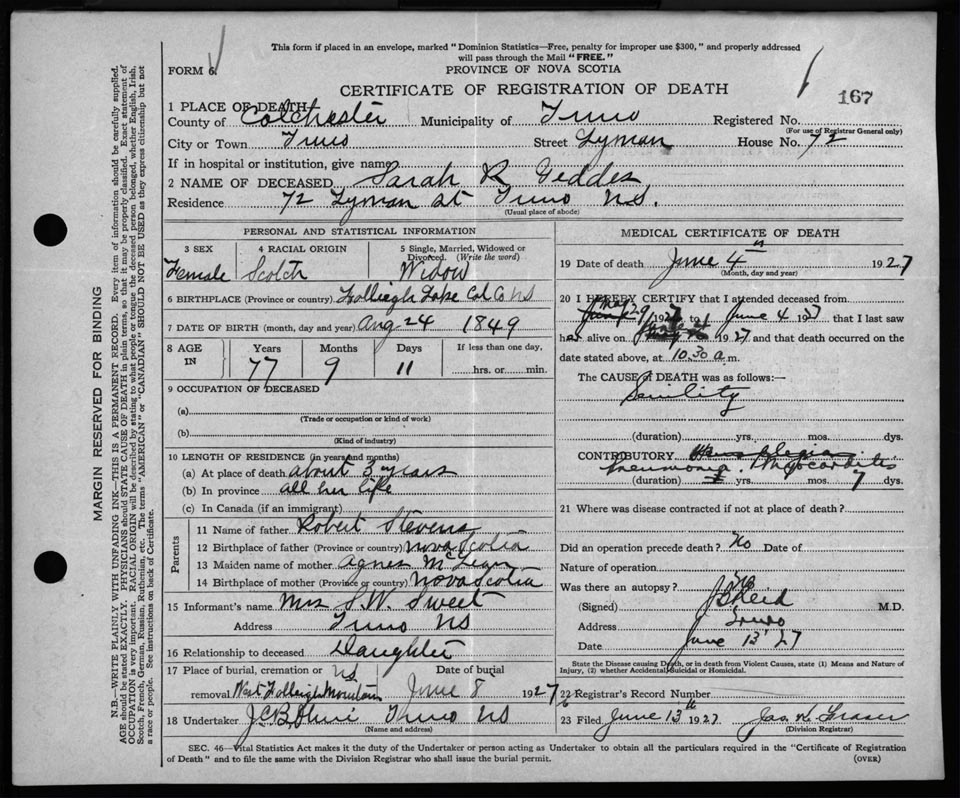 This form if placed in an envelope, marked "Dominion Statistics—Free, penalty for improper use $300," and properly addressed
will pass through the Mail "FREE."
FORM 6.
PROVINCE OF NOVA SCOTIA
CERTIFICATE OF REGISTRATION OF DEATH
167
1 PLACE OF DEATH
County of Colchester Municipality of Truro Registered No.
(For use of Registrar General only)
City or Town Truro Street Lyman House No. 72
If in hospital or institution, give name
2 NAME OF DECEASED Sarah R Geddes
Residence 72 Lyman St Truro N.S.
(Usual place of abode)
PERSONAL AND STATISTICAL INFORMATION
3 SEX 4 RACIAL ORIGIN 5 Single, Married, Widowed or Divorced. (Write the word)
Female Scotch Widow
6 BIRTHPLACE (Province or country) Folleigh Lake Col Co NS
7 DATE OF BIRTH (month, day and year) Aug 24 1849
8 AGE IN Years Months Days If less than one day,
77 9 11 hrs. or min.
9 OCCUPATION OF DECEASED
(a)
(Trade or occupation or kind of work)
(b)
(Kind of industry)
10 LENGTH OF RESIDENCE (in years and months)
(a) At place of death about 3 years
(b) In province all her life
(c) In Canada (if an immigrant)
Parents
11 Name of father Robert Stevens
12 Birthplace of father (Province or country) Nova Scotia
13 Maiden name of mother Agnes McLean
14 Birthplace of mother (Province or country) Nova Scotia
15 Informant's name Mrs S.W. Sweet
Address Truro NS
16 Relationship to deceased Daughter
17 Place of burial, cremation or NS Date of burial
removal West Folleigh Mountain June 8 1927
18 Undertaker Truro NS
(Name and address)
MEDICAL CERTIFICATE OF DEATH
19 Date of death June 4th 1927
(Month, day and year)
20 I HEREBY CERTIFY that I attended deceased from
May 29 1927 to June 4 1927 that I last saw
her alive on 1927 and that death occurred on the
date stated above, at 10.30 a.m.
The CAUSE of DEATH was as follows:—
Senility
(duration) yrs. mos. dys.
CONTRIBUTORY
Pneumonia. Myocarditis
(duration) yrs. mos. 7 dys.
21 Where was disease contracted if not at place of death?
Did an operation precede death? No Date of
Nature of operation
Was there an autopsy? No
(Signed) Reid M.D.
Address Truro
Date June 13 '27
State the Disease causing Death, or in death from Violent Causes, state (1) Means and Nature of
Injury, (2) whether Accidental, Suicidal or Homicidal.
22 Registrar's Record Number
23 Filed June 13th 1927 Jas. N. Fraser
(Division Registrar)
SEC. 46—Vital Statistics Act makes it the duty of the Undertaker or person acting as Undertaker to obtain all the particulars required in the "Certificate of Registration
of Death" and to file the same with the Division Registrar who shall issue the burial permit. (OVER)
MARGIN RESERVED FOR BINDING
N.B.—WRITE PLAINLY WITH UNFADING INK—THIS IS A PERMANENT RECORD. Every item of information should be carefully supplied.
AGE should be stated EXACTLY. PHYSICIANS should STATE CAUSE OF DEATH in plain terms, so that it may be properly classified. Exact statement of
OCCUPATION is very important. RACIAL ORIGIN will be described by stating to what people or tongue the deceased person belonged, whether English, Irish,
Scotch, French, German, Russian, Ruthenian, etc. The terms "AMERICAN" or "CANADIAN" SHOULD NOT BE USED as they express citizenship but not
a race or people. See instructions on back of Certificate.